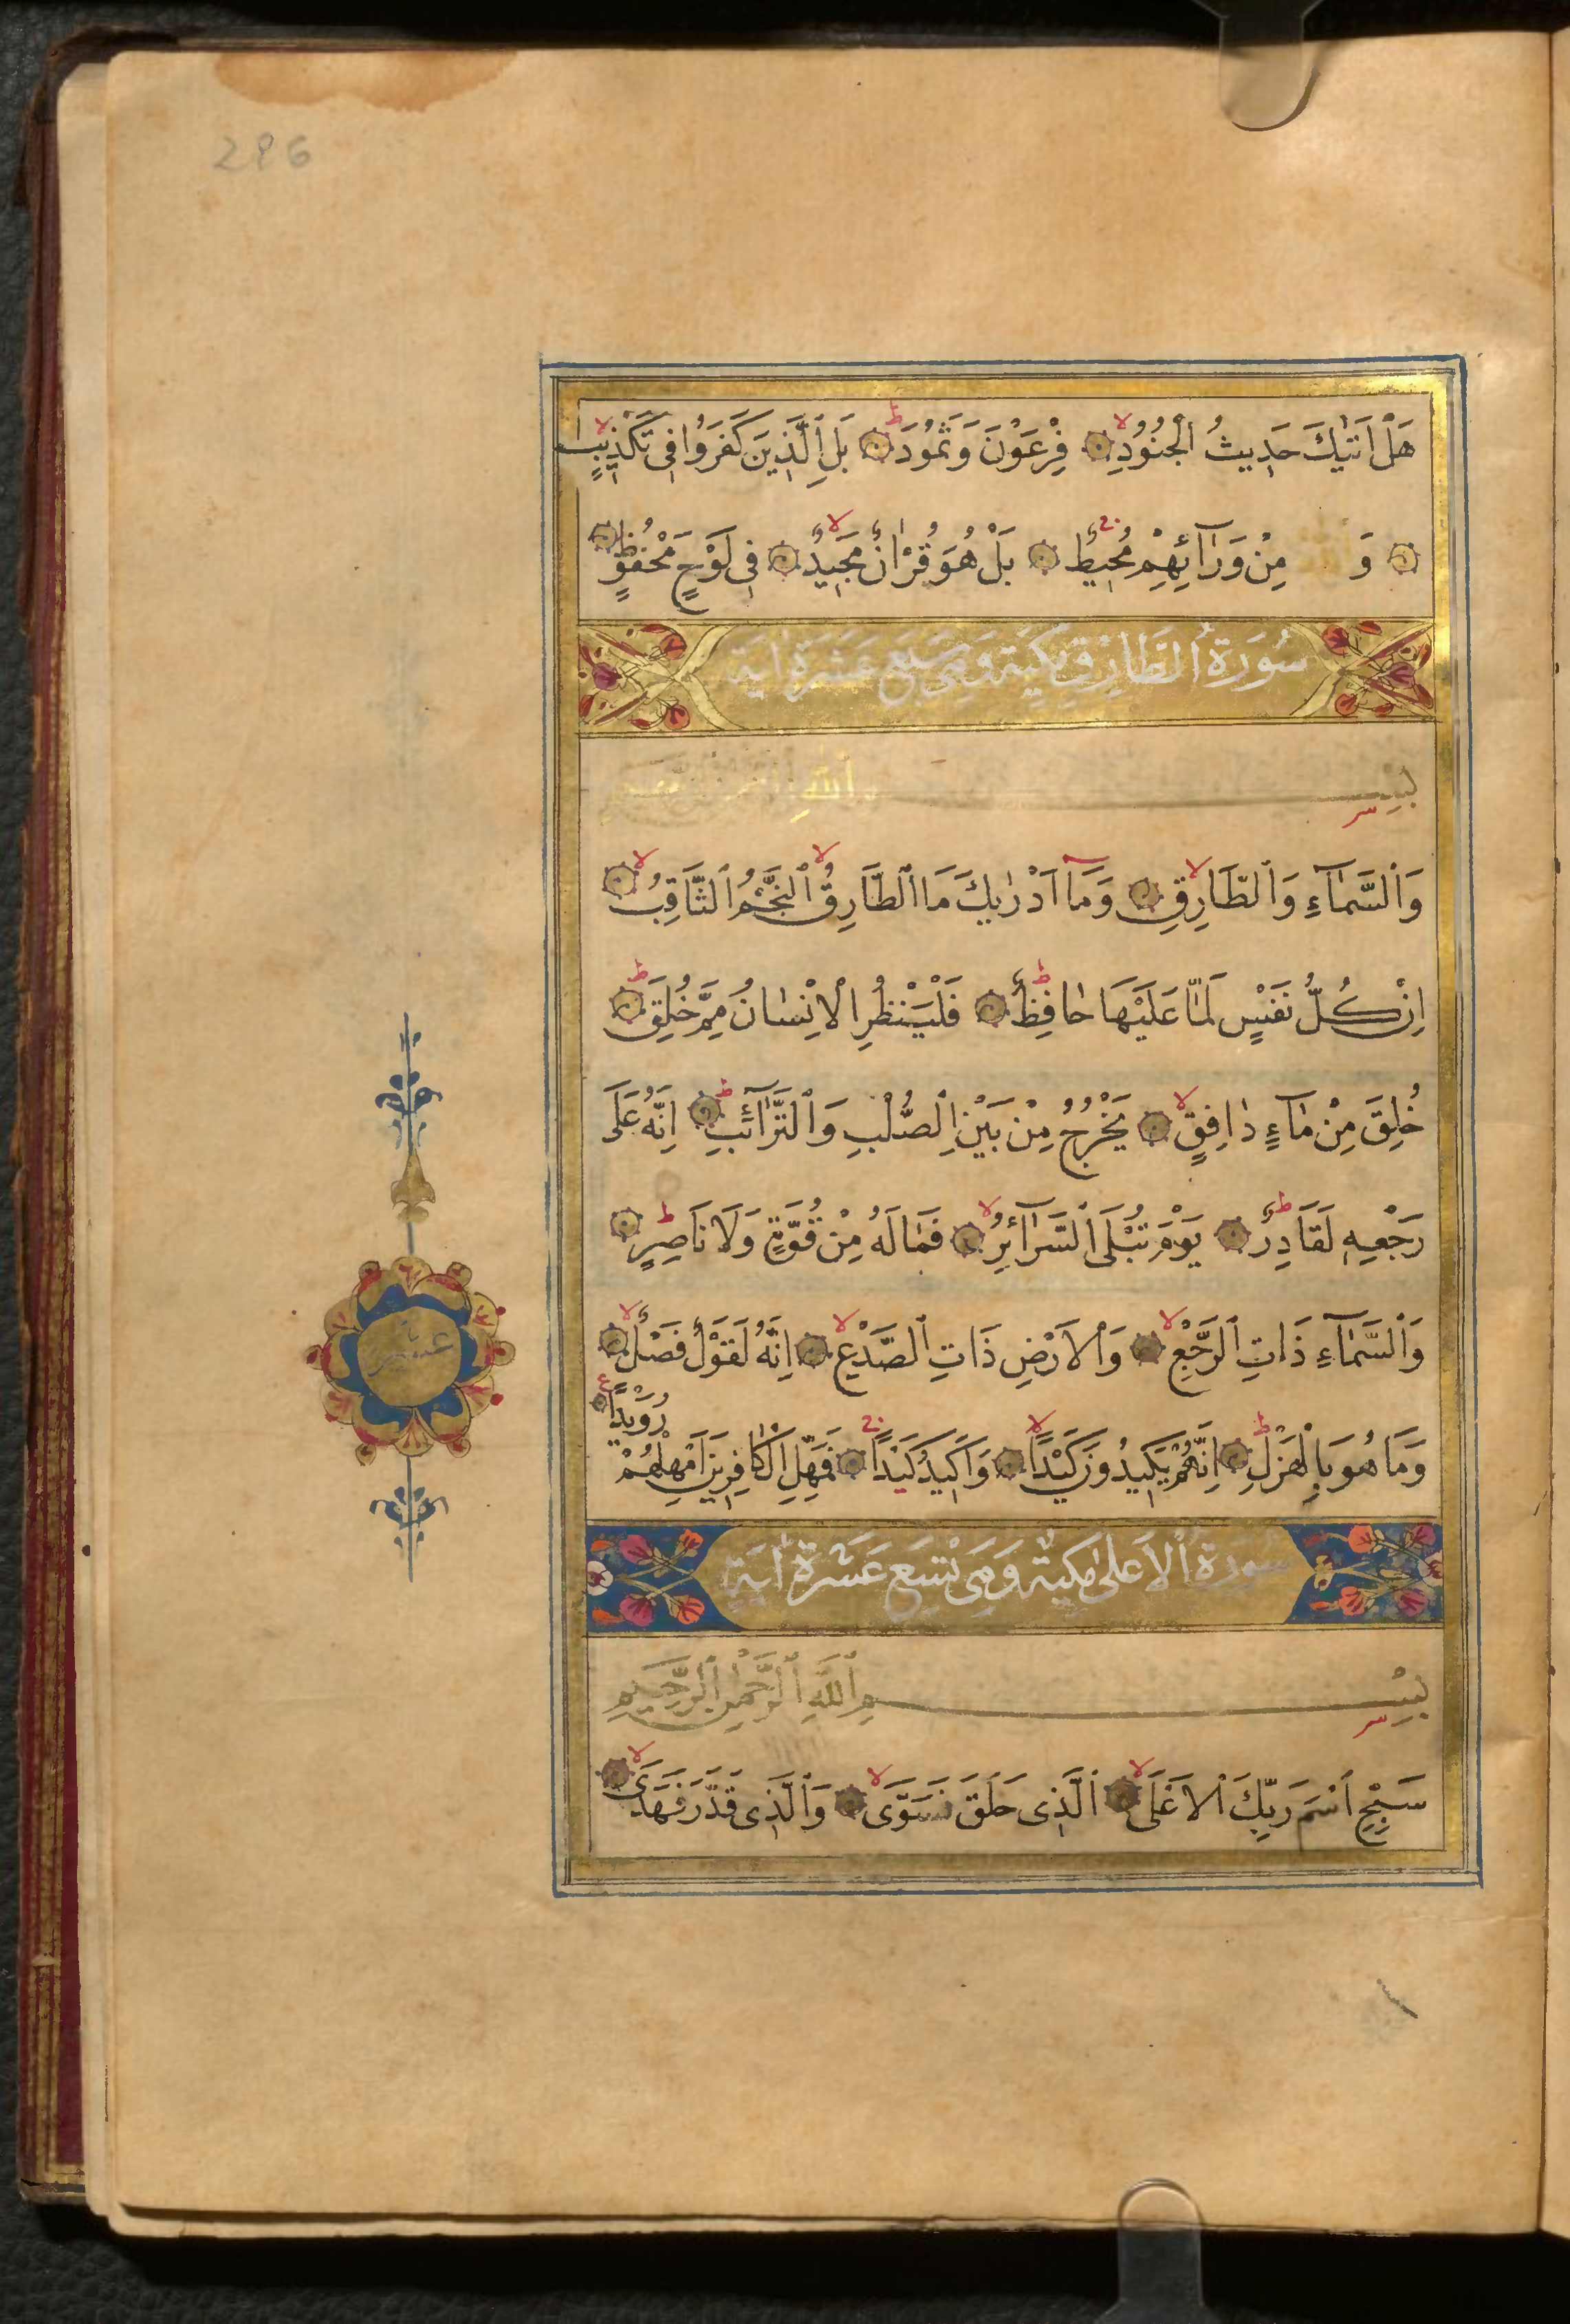 286
هَلْ اَتٰيكَ حَدِيثُ الْجُنُودِ لا فِرْعَوْنَ وَثَمُودَ ط بَلِ الَّذِينَ كَفَرُوا فِى تَكْذِيبٍ لا
وَ مِنْ وَرَآئِهِمْ مُحِيطٌ ج بَلْ هُوَ قُرْاٰنٌ مَجِيدٌ لا فِى لَوْحٍ مَحْفُوظٍ
سُورَةُ الطَّارِقِ مَكِّيَّة وَهِىَ سَبْعَ عَشَرَةَ اٰيَة
بِسْمِ اللّٰهِ
وَالسَّمَآءِ وَالطَّارِقِ لا وَمَآ اَدْرٰيكَ مَا الطَّارِقُ لا النَّجْمُ الثَّاقِبُ لا
اِنْ كُلُّ نَفْسٍ لَمَّا عَلَيْهَا حَافِظٌ ط فَلْيَنْظُرِ الْاِنْسَانُ مِمَّ خُلِقَ ط
خُلِقَ مِنْ مَآءٍ دَافِقٍ لا يَخْرُجُ مِنْ بَيْنِ الصُّلْبِ وَالتَّرَآئِبِ ط اِنَّهُ عَلَى
رَجْعِهِ لَقَادِرٌ ط يَوْمَ تُبْلَى السَّرَآئِرُ لا فَمَا لَهُ مِنْ قُوَّةٍ وَلَا نَاصِرٍ ط
وَالسَّمَآءِ ذَاتِ الرَّجْعِ لا وَالْاَرْضِ ذَاتِ الصَّدْعِ لا اِنَّهُ لَقَوْلٌ فَصْلٌ لا
وَمَا هُوَ بِالْهَزْلِ ط اِنَّهُمْ يَكِيدُونَ كَيْدًا لا وَاَكِيدُ كَيْدًا ج فَمَهِّلِ الْكَافِرِينَ اَمْهِلْهُمْ
رُوَيْدًا ع
عشر
سُورَةُ الْاَعْلٰى مَكِيَّةٌ وَهِىَ تِسْعَ عَشْرَةَ اٰيَة
بِسْمِ اللّٰهِ الرَّحْمٰنِ الرَّحِيمِ
سَبِّحِ اسْمَ رَبِّكَ الْاَعْلَى لا الَّذِى خَلَقَ فَسَوَّى لا وَالَّذِى قَدَّرَ فَهَدَى لا